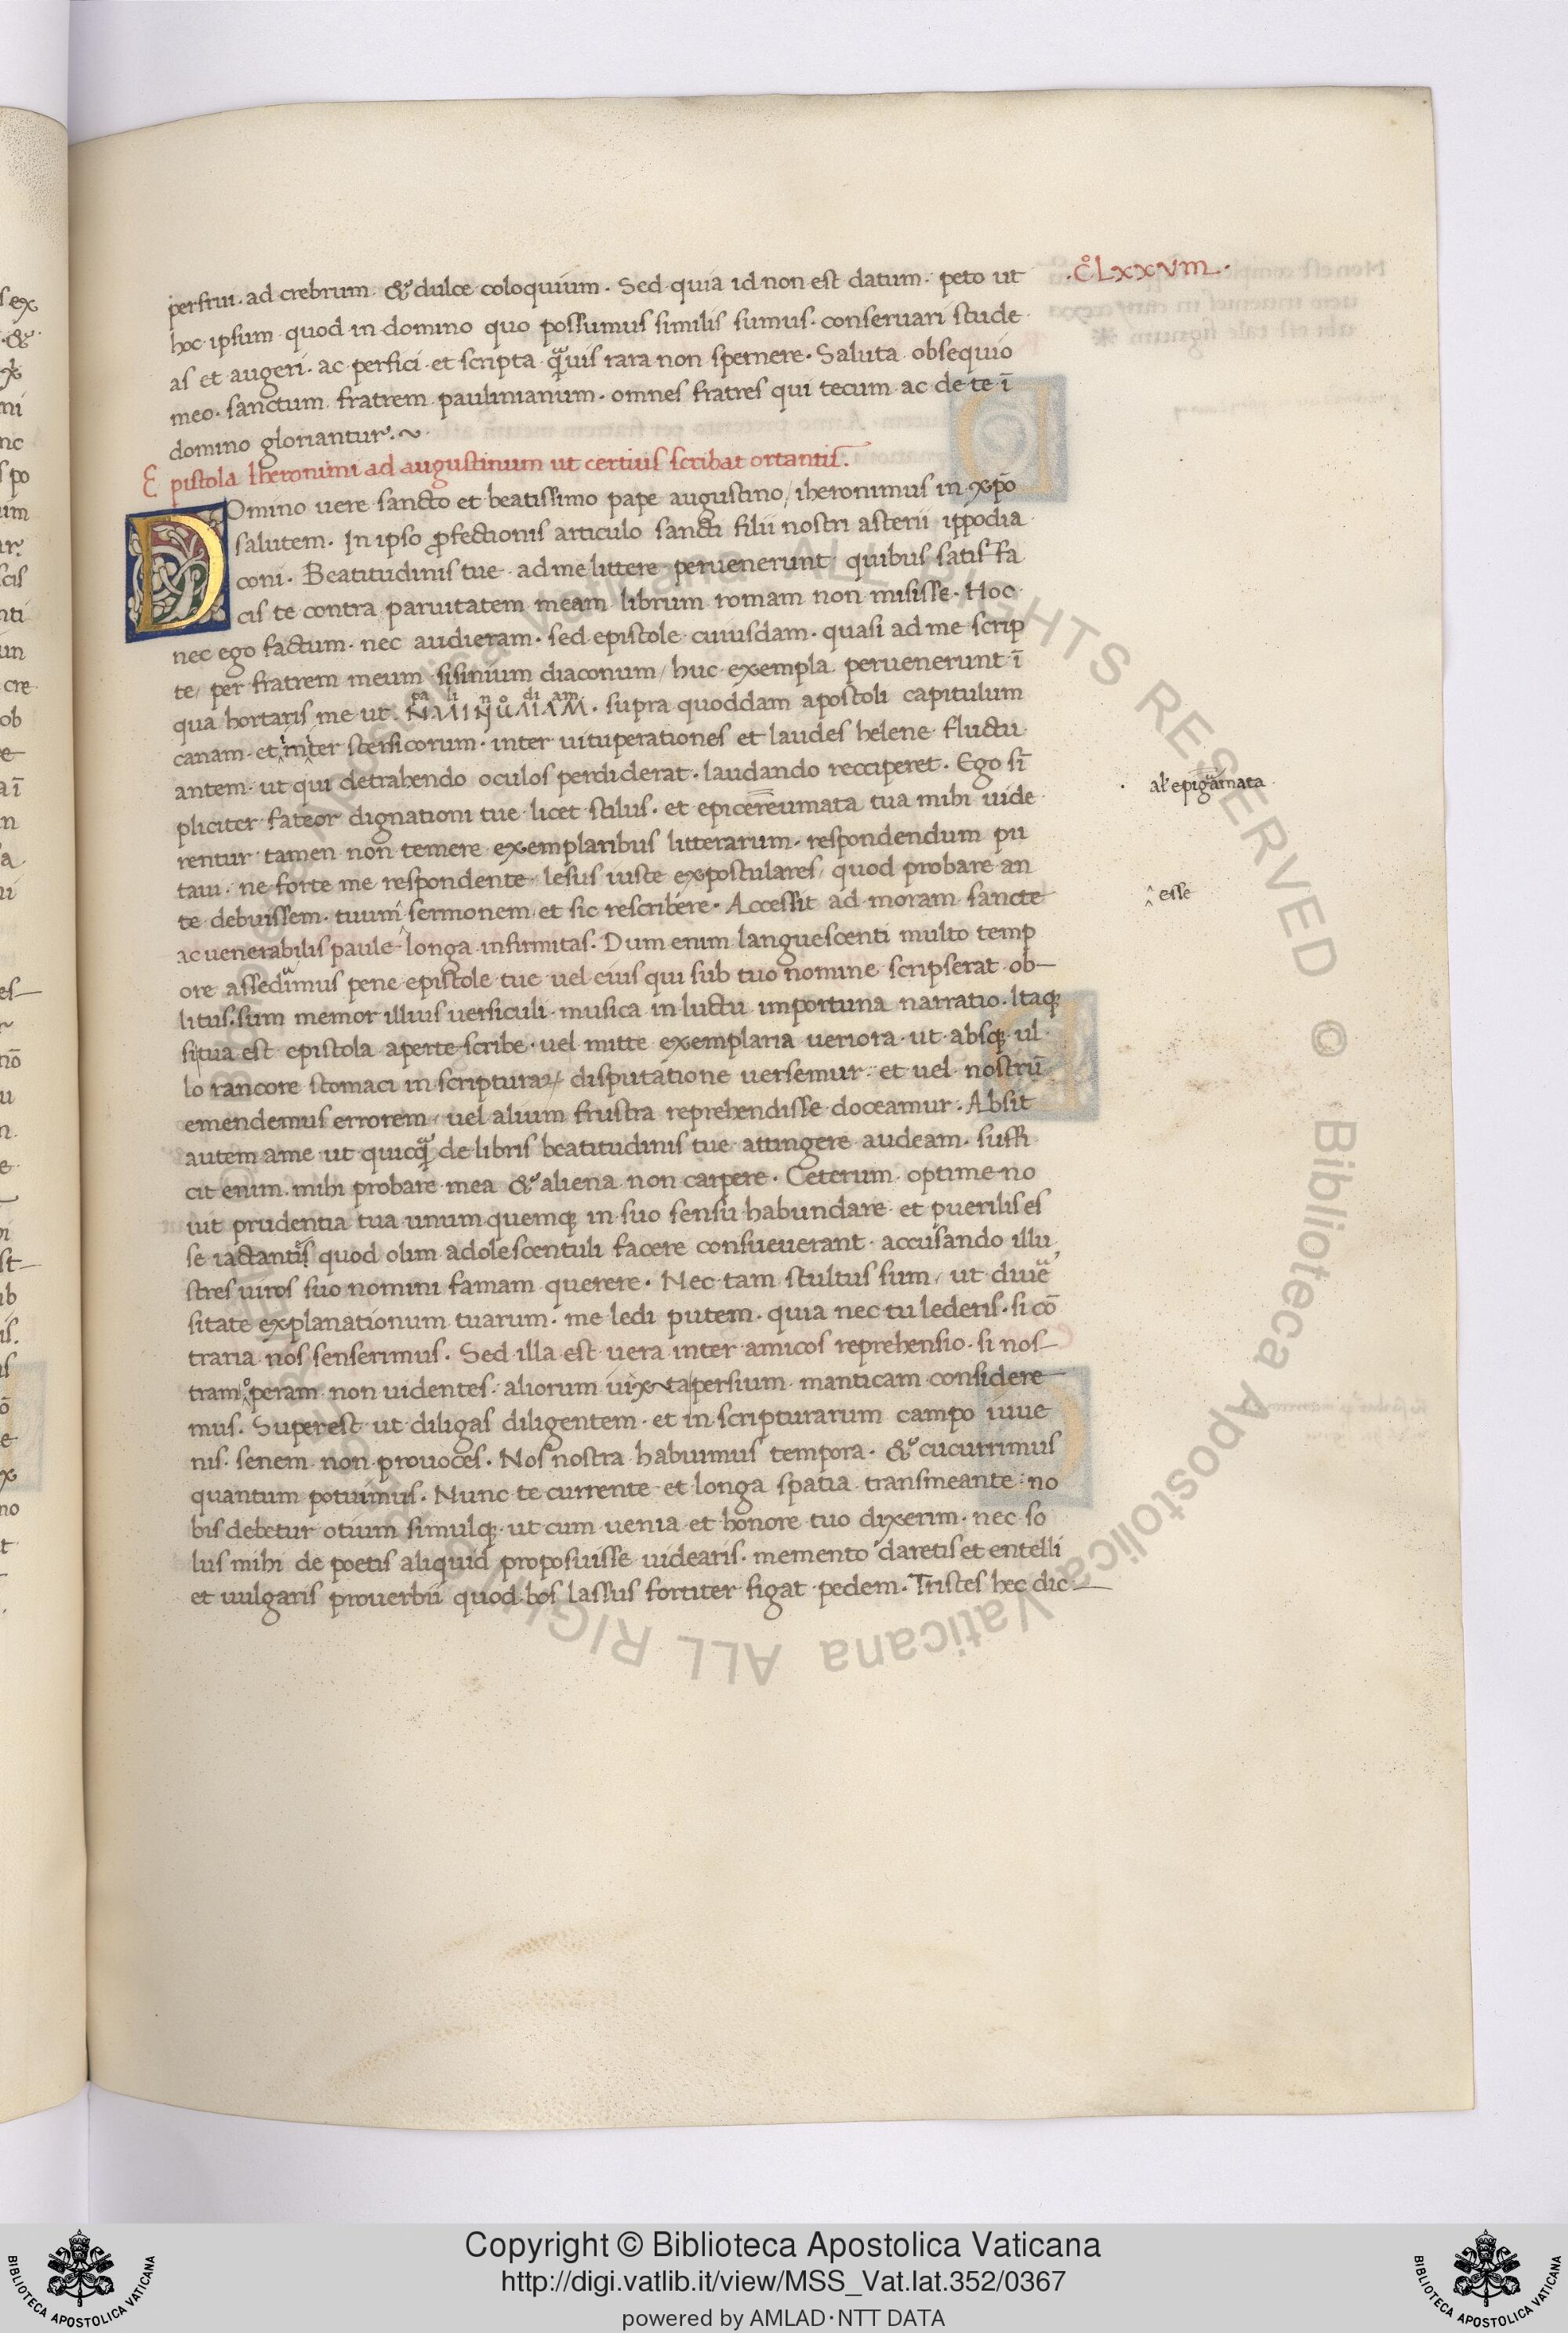 .CºLxxvııı.
perfrui. ad crebrum. & dulce coloquium. Sed quia id non est datum. peto ut
hoc ipsum quod in domino quo possumus similis sumus. conseruari stude
as et augeri. ac perfici et scripta q̃uis rara non spernere. Saluta obsequio
meo. sanctum fratrem paulinianum. omnes fratres qui tecum ac de te ī
domino gloriantur.~
Epistola Iheronimi ad augustinum ut certius scribat ortantis.
Domino uere sancto et beatissimo pape augustino/ iheronimus in xp̄o
salutem. In ipso ꝓfectionis articulo sancti filii nostri asterii ippodia
coni. Beatitudinis tue ad me littere peruenerunt quibus satis fa
cis te contra paruitatem meam librum romam non misisse. Hoc
nec ego factum. nec audieram. sed epistole cuiusdam. quasi ad me scrip
te/ per fratrem meum sisinium diaconum/ huc exempla peruenerunt ī
pa li n o di am
qua hortaris me ut. . supra quoddam apostoli capitulum
canam. et inter stersicorum. inter uituperationes et laudes helene fluctu
antem. ut qui detrahendo oculos perdiderat. laudando recciperet. Ego sī
al' epigramata
pliciter fateor dignationi tue licet stilus. et epicereumata tua mihi uide
rentur tamen non temere exemplaribus litterarum. respondendum pu
taui. ne forte me respondente lesus iuste expostulares/ quod probare an
^ esse
te debuissem. tuum sermonem et sic rescribere. Accessit ad moram sancte
ac uenerabilis paule longa infirmitas. Dum enim languescenti multo temp
ore assedimus pene epistole tue uel eius qui sub tuo nomine scripserat ob-
litus sum memor illius uersiculi. musica in luctu importuna narratio. Itaqꝫ
si tua est epistola aperte scribe. uel mitte exemplaria ueriora. ut absqꝫ ul
lo rancore stomaci in scripturaꝝ disputatione uersemur. et uel nostrū
emendemus errorem/ uel alium frustra reprehendisse doceamur. Absit
autem a me ut quicq̃ de libris beatitudinis tue attingere audeam. suffi
cit enim mihi probare mea & aliena non carpere. Ceterum optime no
uit prudentia tua unum quemqꝫ in suo sensu habundare et puerilis es
se iactantis quod olim adolescentuli facere consueuerant. accusando illu
stres uiros suo nomini famam querere. Nec tam stultus sum/ ut diue
sitate explanationum tuarum. me ledi putem. quia nec tu lederis. si cō
traria nos senserimus. Sed illa est uera inter amicos reprehensio. si nos-
tram peram non uidentes. aliorum uixta persium manticam considere
mus. Superest ut diligas diligentem. et in scripturarum campo iuue
nis. senem non prouoces. Nos nostra habuimus tempora. & cucurrimus
quantum potuimus. Nunc te currente et longa spatia transmeante. no
bis debetur otium simulqꝫ ut cum uenia et honore tuo dixerim. nec so
lus mihi de poetis aliquid proposuisse uidearis. memento daretis et entelli
et uulgaris prouerbii quod bos lassus fortiter figat pedem. Tristes hec dic-
Copyright © Biblioteca Apostolica Vaticana
http://digi.vatlib.it/view/MSS_Vat.lat.352/0367
powered by AMLAD·NTT DATA
BIBLIOTECA APOSTOLICA VATICANA
BIBLIOTECA APOSTOLICA VATICANA